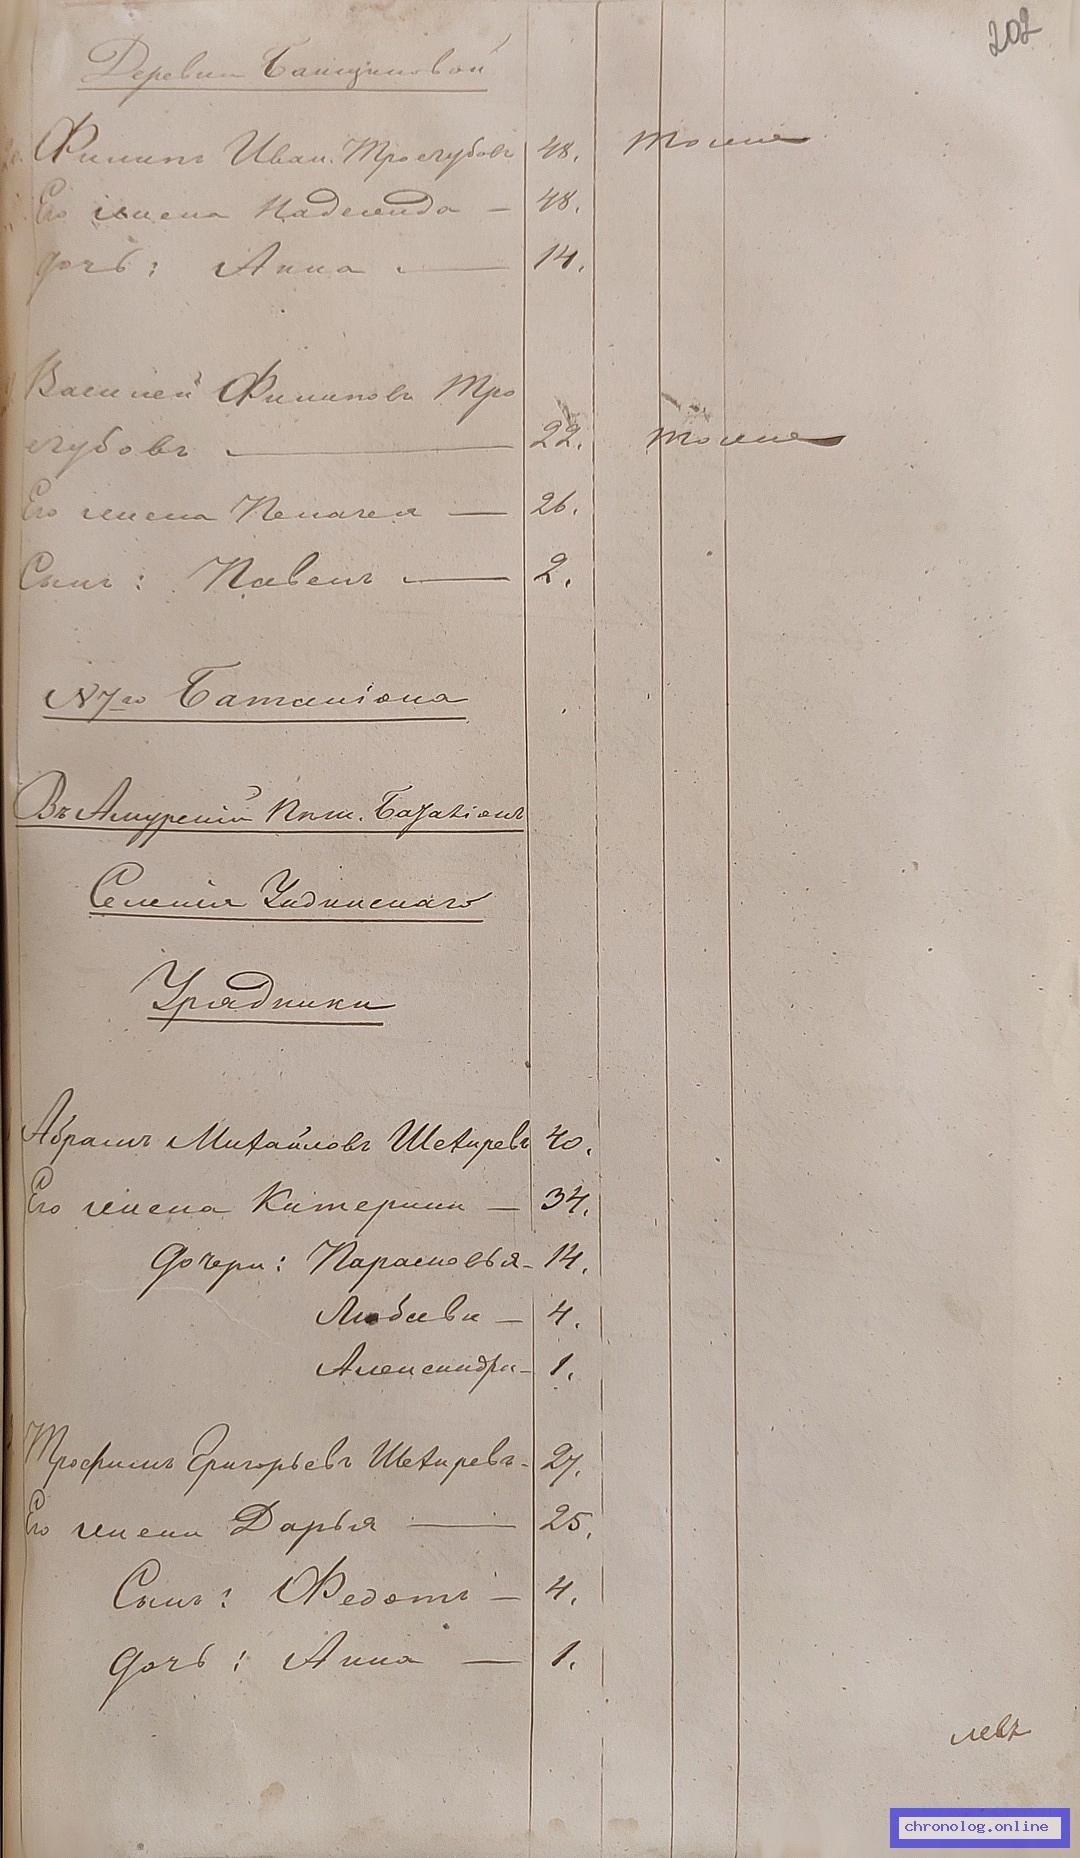 202
Деревни Банщиковой
Филипъ Иван. Трескубовъ 48. тоже
Его жена Надежда — 48.
дочь: Анна — 14.
Василей Филиповъ Тро
22. тоже
Его жена Пелагея — 26.
Сынъ: Павелъ — 2.
N 7го Баталіона
Въ Амурскій Пѣш. Баталіонъ
Селенія
Урядники
Абрамъ Михайловъ Шехиревъ 40.
Его жена Катерина — 34.
дочери: Парасковья — 14.
Любовь — 4.
Александра — 1.
Трофимъ Григорьевъ Шехиревъ — 27.
Его жена Дарья — 25.
Сынъ: Федотъ — 4.
дочь: Анна — 1.
левъ
chronolog.online